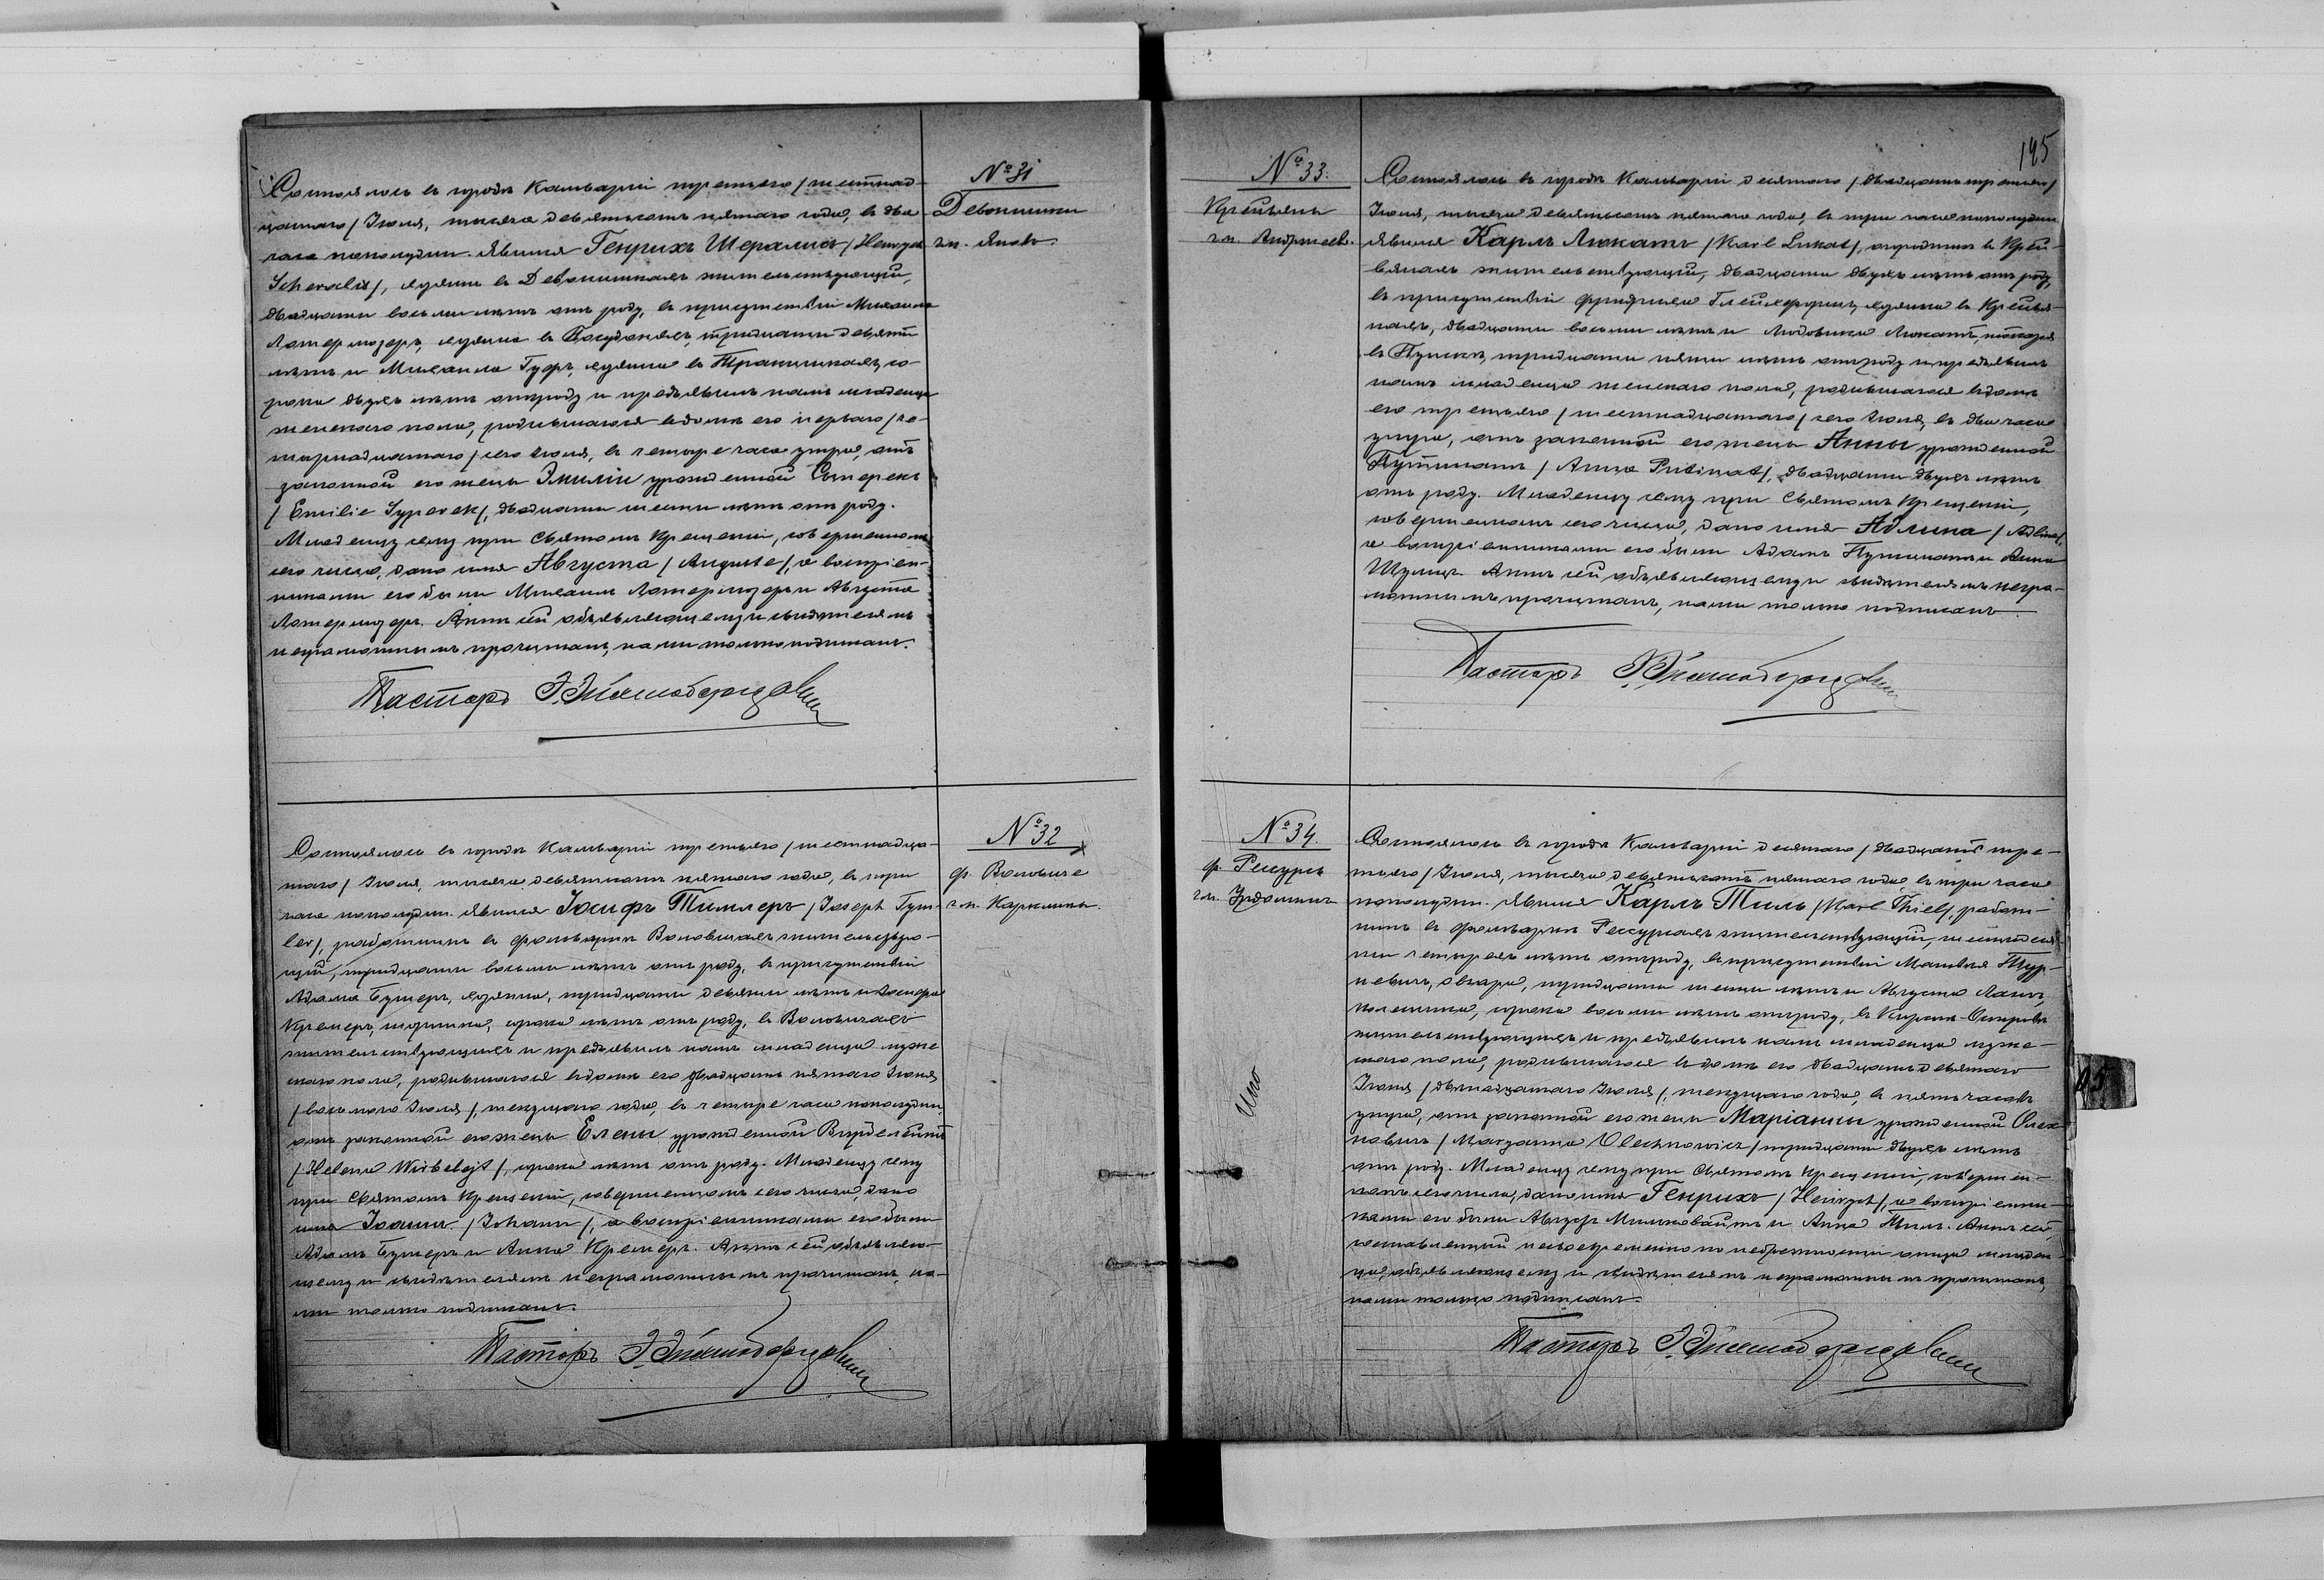 № 31
Девонишки
гм. Яново.
Состоялось въ городѣ Кальваріи третьяго /шестнад-
цатаго/ Іюля, тысяча девятьсотъ пятаго года, въ два
часа пополудни. Явился Генрихъ Шералисъ /Heinrych
Scheralis/, хозяинъ въ Девонишкахъ жительствующій,
двадцати восьми лѣтъ отъ роду, въ присутствіи Михаила
Лотермозеръ, хозяина въ тридцати девяти
лѣтъ и Михаила Гуфъ, хозяина въ со-
рока двухъ лѣтъ отъ роду и предъявилъ намъ младенца
женскаго пола, родившагося въ домѣ его перваго /че-
тырнадцатаго/ сего Іюля, въ четыре часа утра, отъ
законной его жены Эмиліи урожденной Сыперекъ
/Emilie Syperek/, двадцати шести лѣтъ отъ роду.
Младенцу сему при Святомъ Крещеніи, совершенномъ
сего числа, дано имя Августа /Auguste/, а воспріем-
никами его были Михаилъ Лотермозеръ и Августа
Лотермозеръ. Актъ сей объявляющему и свидѣтелямъ
неграмотнымъ прочитанъ, нами только подписанъ.
Пасторъ
№ 32
ф. Воловиче
гм. Каркляны.
Состоялось въ городѣ Кальваріи третьяго /шестнадца-
таго/ Іюля, тысяча девятьсотъ пятаго года, въ три
часа пополудни. Явился Іосифъ Тимлеръ /Joseph Tym-
ler/, работникъ въ фольваркѣ Воловичахъ жительствую-
щій, тридцати восьми лѣтъ отъ роду, въ присутствіи
Адама Бумеръ, хозяина, тридцати девяти лѣтъ и
Кремеръ, сорока лѣтъ отъ роду, въ Воловичахъ
жительствующихъ и предъявилъ намъ младенца муже-
скаго пола, родившагося въ домѣ его двадцать пятаго Іюня
/восьмого Іюля/, текущаго года, въ четыре часа пополудни,
отъ законной его жены Елены урожденной Вирбелейтъ
/Helena Wirbelejt/, сорока лѣтъ отъ роду. Младенцу сему
при Святомъ Крещеніи, совершенномъ сего числа, дано
имя Іоаннъ /Johann/, а воспріемниками его были
Адамъ Бумеръ и Анна Кремеръ. Актъ сей объявляю-
щему и свидѣтелямъ неграмотнымъ прочитанъ, на-
ми только подписанъ.
Пасторъ
195
№ 33.
Крейвяны
гм. Андржеево.
Состоялось въ городѣ Кальваріи десятаго /двадцать третьяго/
Іюля, тысяча девятьсотъ пятаго года, въ три часа пополудни.
Явился Карлъ Люкатъ /Karl Lukat/, въ Крей-
вянахъ жительствующій, двадцати двухъ лѣтъ отъ роду,
въ присутствіи Фридриха хозяина въ Крейвя-
нахъ, двадцати восьми лѣтъ и Людовика Люкатъ,
въ тридцати пяти лѣтъ отъ роду и предъявилъ
намъ младенца женскаго пола, родившагося въ домѣ
его третьяго /шестнадцатаго/ сего Іюля, въ два часа
утра, отъ законной его жены Анны урожденной
Путинатъ /Anna Putinat/, двадцати двухъ лѣтъ
отъ роду. Младенцу сему при Святомъ Крещеніи,
совершенномъ сего числа, дано имя Адлина /Adlina/,
а воспріемниками его были Адамъ Путинатъ и Анна
Шульцъ. Актъ сей объявляющему и свидѣтелямъ негра-
мотнымъ прочитанъ, нами только подписанъ.
Пасторъ
№ 34.
ф. Рессурсъ
гм. Урдоминъ
Состоялось въ городѣ Кальваріи десятаго /двадцать тре-
тьяго/ Іюля, тысяча девятьсотъ пятаго года, въ три часа
пополудни. Явился Карлъ Тиль /Karl Thiel/, работ-
никъ въ фольваркѣ Рессурсахъ жительствующій, шестидеся-
ти четырехъ лѣтъ отъ роду, въ присутствіи Матвѣя
тридцати шести лѣтъ и Августа
сорока восьми лѣтъ отъ роду, въ
жительствующихъ и предъявилъ намъ младенца муже-
скаго пола, родившагося въ домѣ его двадцать девятаго
Іюня /двѣнадцатаго Іюля/, текущаго года, въ пять часовъ
утра, отъ законной его жены Маріанны урожденной Олех-
новичъ /Maryanna Olechnowicz/ тридцати двухъ лѣтъ
отъ роду. Младенцу сему при Святомъ Крещеніи, совершен-
номъ сего числа, дано имя Генрихъ /Heinrych/, а воспріемни-
ками его были Августъ и Анна Тиль. Актъ сей,
составленный несвоевременно по небрежности отца младен-
ца, объявляющему и свидѣтелямъ неграмотнымъ прочитанъ,
нами только подписанъ.
Пасторъ